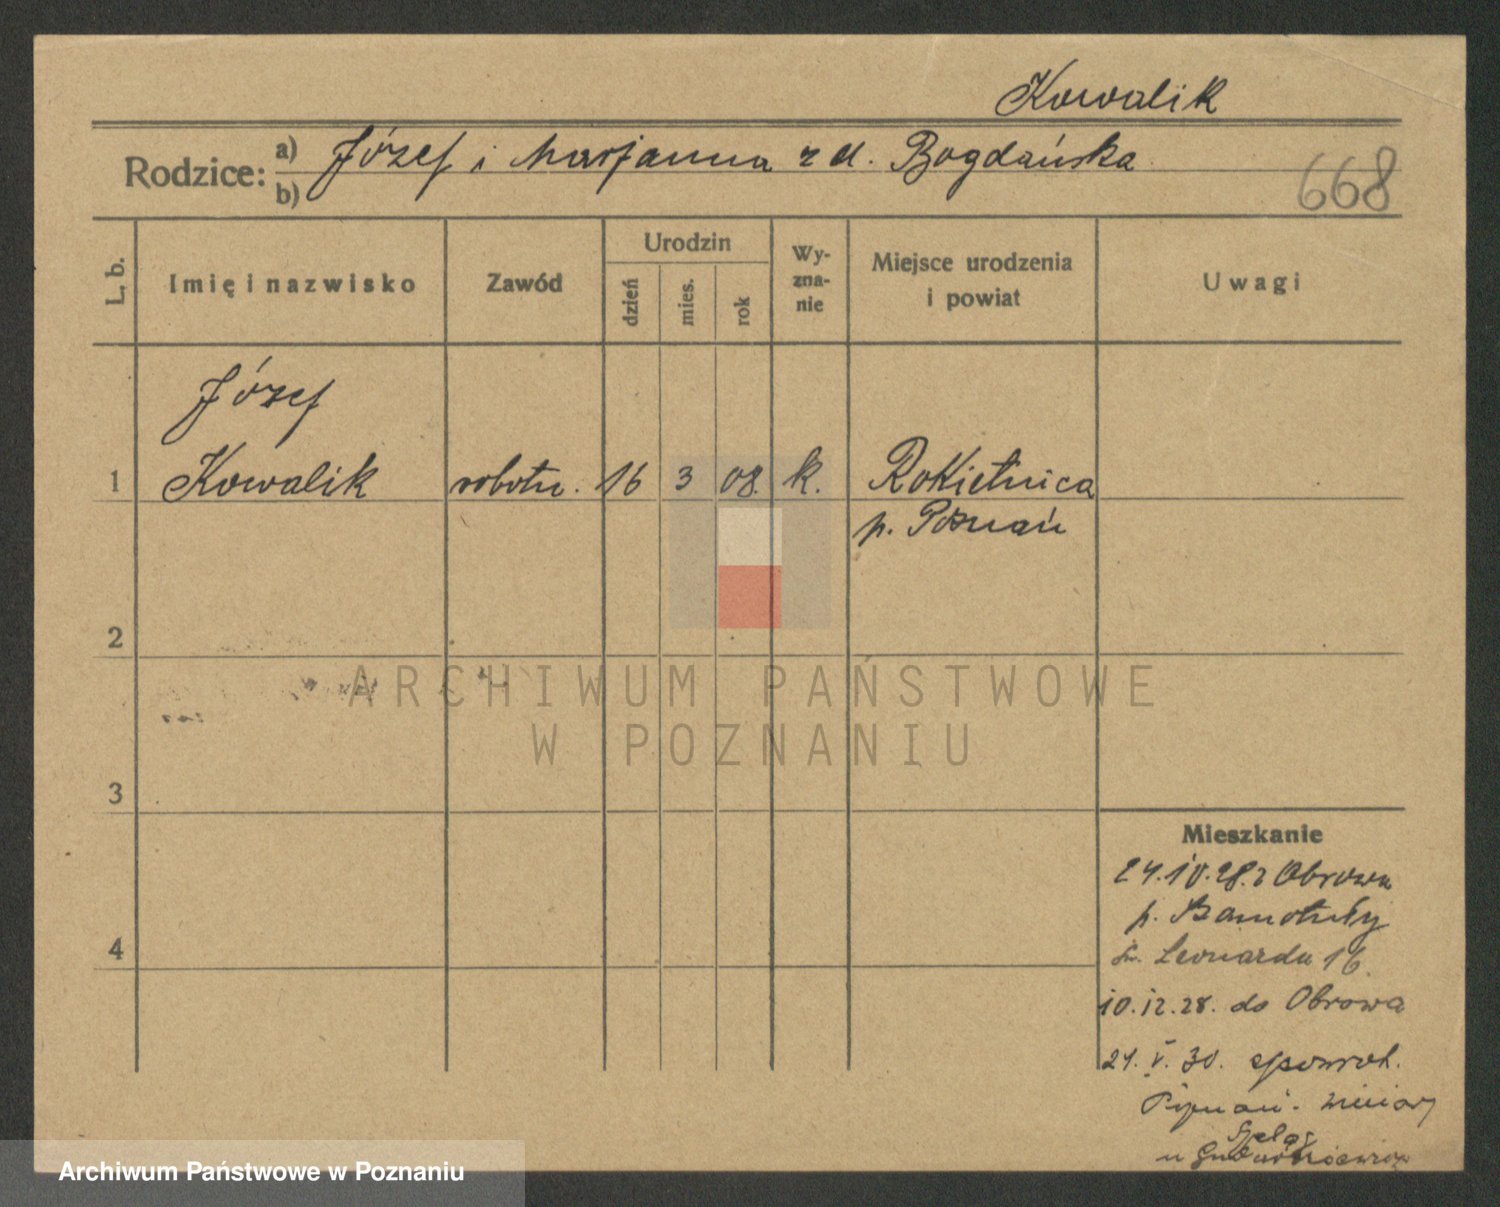 Kowalik
Rodzice: a) b) Józef i Marjanna z d. Bogdańska
668
L. b.
Imię i nazwisko
Zawód
Urodzin
dzień
mies.
rok
Wy-
zna-
nie
Miejsce urodzenia
i powiat
Uwagi
Józef
1 Kowalik robotn. 16 3 08. k. Rokietnica
p. Poznań
2
ARCHIWUM PAŃSTWOWE
W POZNANIU
3
Mieszkanie
24.10.28. z Obrowa
p. Szamotuły
4
św. Leonarda 16.
10.12.28. do Obrowa
21. V. 30.
Szeląg
u
Archiwum Państwowe w Poznaniu